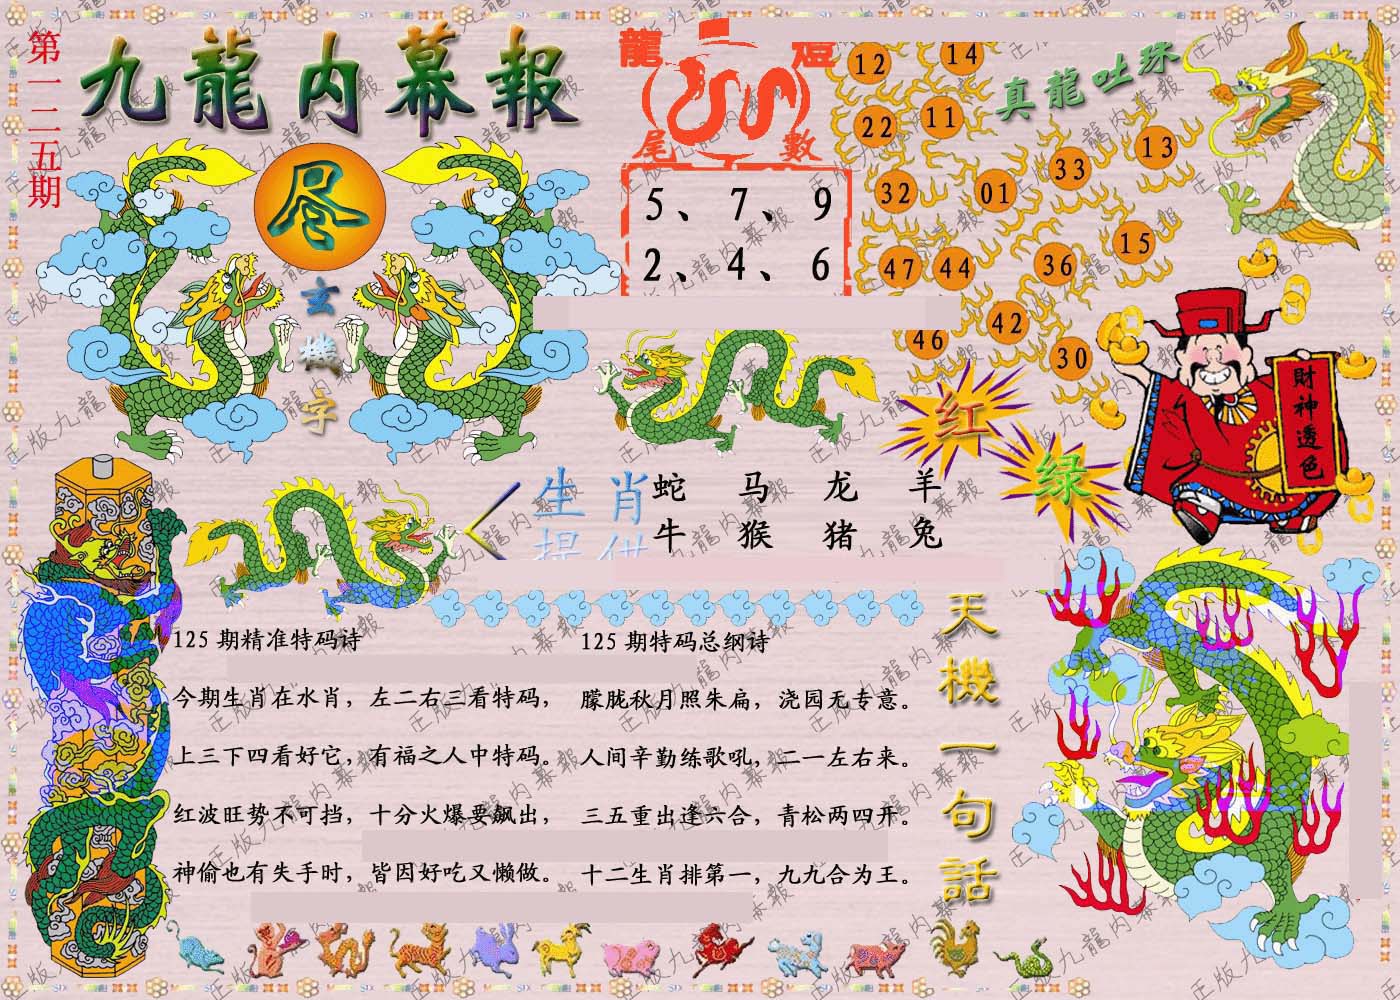 第一二五期
九龍内幕報
尽
玄機字
龍 燈
尾 數
5、7、9
2、4、6
真龍吐珠
12 14
22 11
33 13
32 01
47 44 36 15
46 42 30
财神透色
红
绿
生肖
提供
蛇 马 龙 羊
牛 猴 猪 兔
125期精准特码诗
今期生肖在水肖，左二右三看特码，
上三下四看好它，有福之人中特码。
红波旺势不可挡，十分火爆要飙出，
神偷也有失手时，皆因好吃又懒做。
125期特码总纲诗
朦胧秋月照朱扁，浇园无专意。
人间辛勤练歌吼，二一左右来。
三五重出逢六合，青松两四开。
十二生肖排第一，九九合为王。
天機一句話
正版九龍内幕報